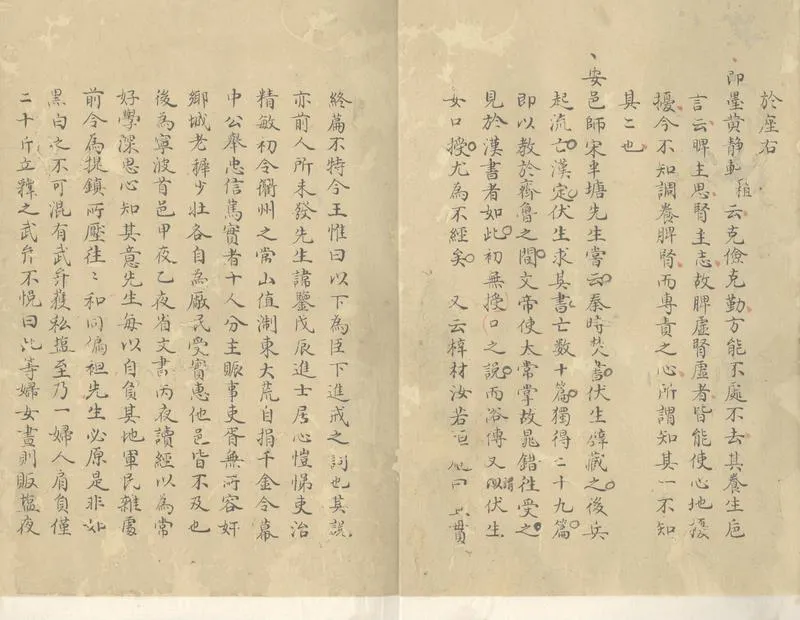 於座右
即墨黄静軋 云克儉克勤方能不處不去其養生巵
言云脾主思腎主志故脾虚腎虚者皆能使心地擾
擾今不知調養脾腎而專責之心所謂知其一不知
其二也
安邑師宋半塘先生嘗云秦時焚書伏生壁藏之後兵
起流亡漢定伏生求其書亡数十篇獨得二十九篇
即以教於齊魯之間文帝使大常掌故晁錯徃受之
見於漢書者如此初無授口之説而俗傳又謂伏生
女口授尤為不經矣 又云梓材汝若恒 曰 上貫
終篇不特今王惟曰以下為臣下進戒之詞也其説
亦前人所未發先生諱鑒戊辰進士居心愷悌吏治
精敏初令衢州之常山值浙東大荒自捐千金令幕
中公舉忠信篤實者十人分主賑事吏胥無所容奸
鄉城老穉少壮各自為厰民受實惠他邑皆不及也
後為寧波首邑甲夜乙夜省文書丙夜讀經以為常
好學深思心知其意先生每以自負其地軍民雜處
前令為提鎮所壓往々和同偏袒先生必原是非如
黑白之不可混有武弁獲私塩至乃一婦人肩負僅
二十斤立釋之武弁不悦曰此等婦女晝則販塩夜